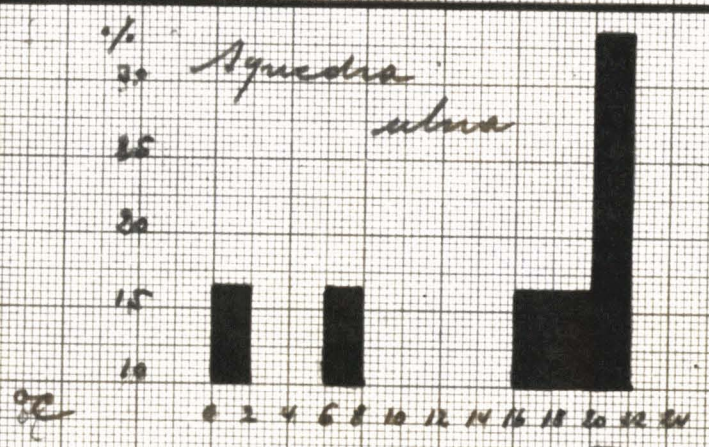 %
Synedra
30
ulna
25
20
15
10
°C 0 2 4 6 8 10 12 14 16 18 20 22 24